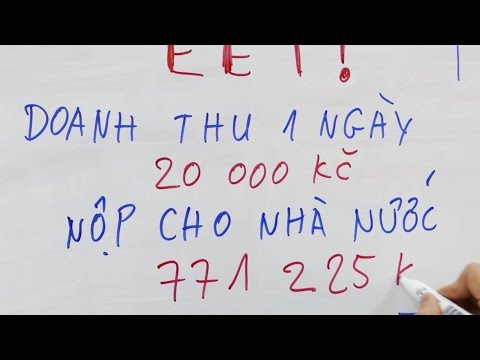 EET!
DOANH THU 1 NGÀY
20 000 KČ
NỘP CHO NHÀ NƯỚC
771 225 K